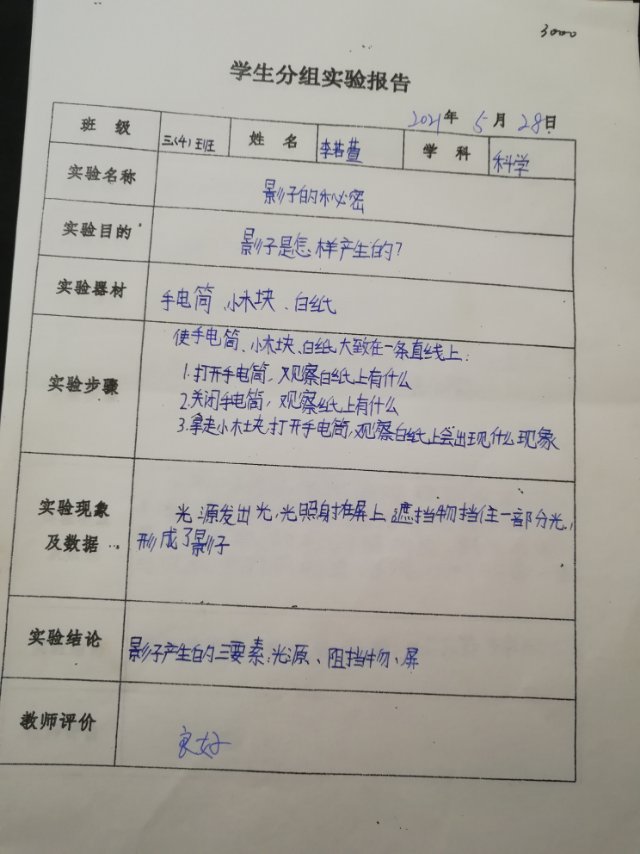 3000
学生分组实验报告
2021年 5月 28日
班 级 三(4)班 姓 名 李若萱 学 科 科学
实验名称 影子的秘密
实验目的 影子是怎样产生的?
实验器材 手电筒、小木块、白纸
使手电筒、小木块、白纸大致在一条直线上:
1.打开手电筒,观察白纸上有什么
实验步骤 2.关闭手电筒,观察纸上有什么
3.拿走小木块,打开手电筒,观察白纸上会出现什么现象
实验现象 光源发出光,光照射在屏上,遮挡物挡住一部分光,
及数据 形成了影子
实验结论 影子产生的三要素:光源、阻挡物、屏
教师评价 良好